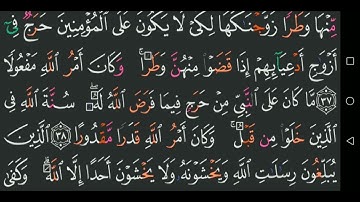 مِّنْهَا وَطَرًا زَوَّجْنَٰكَهَا لِكَىْ لَا يَكُونَ عَلَى ٱلْمُؤْمِنِينَ حَرَجٌ فِىٓ
أَزْوَٰجِ أَدْعِيَآئِهِمْ إِذَا قَضَوْا۟ مِنْهُنَّ وَطَرًا ۚ وَكَانَ أَمْرُ ٱللَّهِ مَفْعُولًا
٣٧ مَّا كَانَ عَلَى ٱلنَّبِىِّ مِنْ حَرَجٍ فِيمَا فَرَضَ ٱللَّهُ لَهُۥ ۖ سُنَّةَ ٱللَّهِ فِى
ٱلَّذِينَ خَلَوْا۟ مِن قَبْلُ ۚ وَكَانَ أَمْرُ ٱللَّهِ قَدَرًا مَّقْدُورًا ٣٨ ٱلَّذِينَ
يُبَلِّغُونَ رِسَٰلَٰتِ ٱللَّهِ وَيَخْشَوْنَهُۥ وَلَا يَخْشَوْنَ أَحَدًا إِلَّا ٱللَّهَ ۗ وَكَفَىٰ